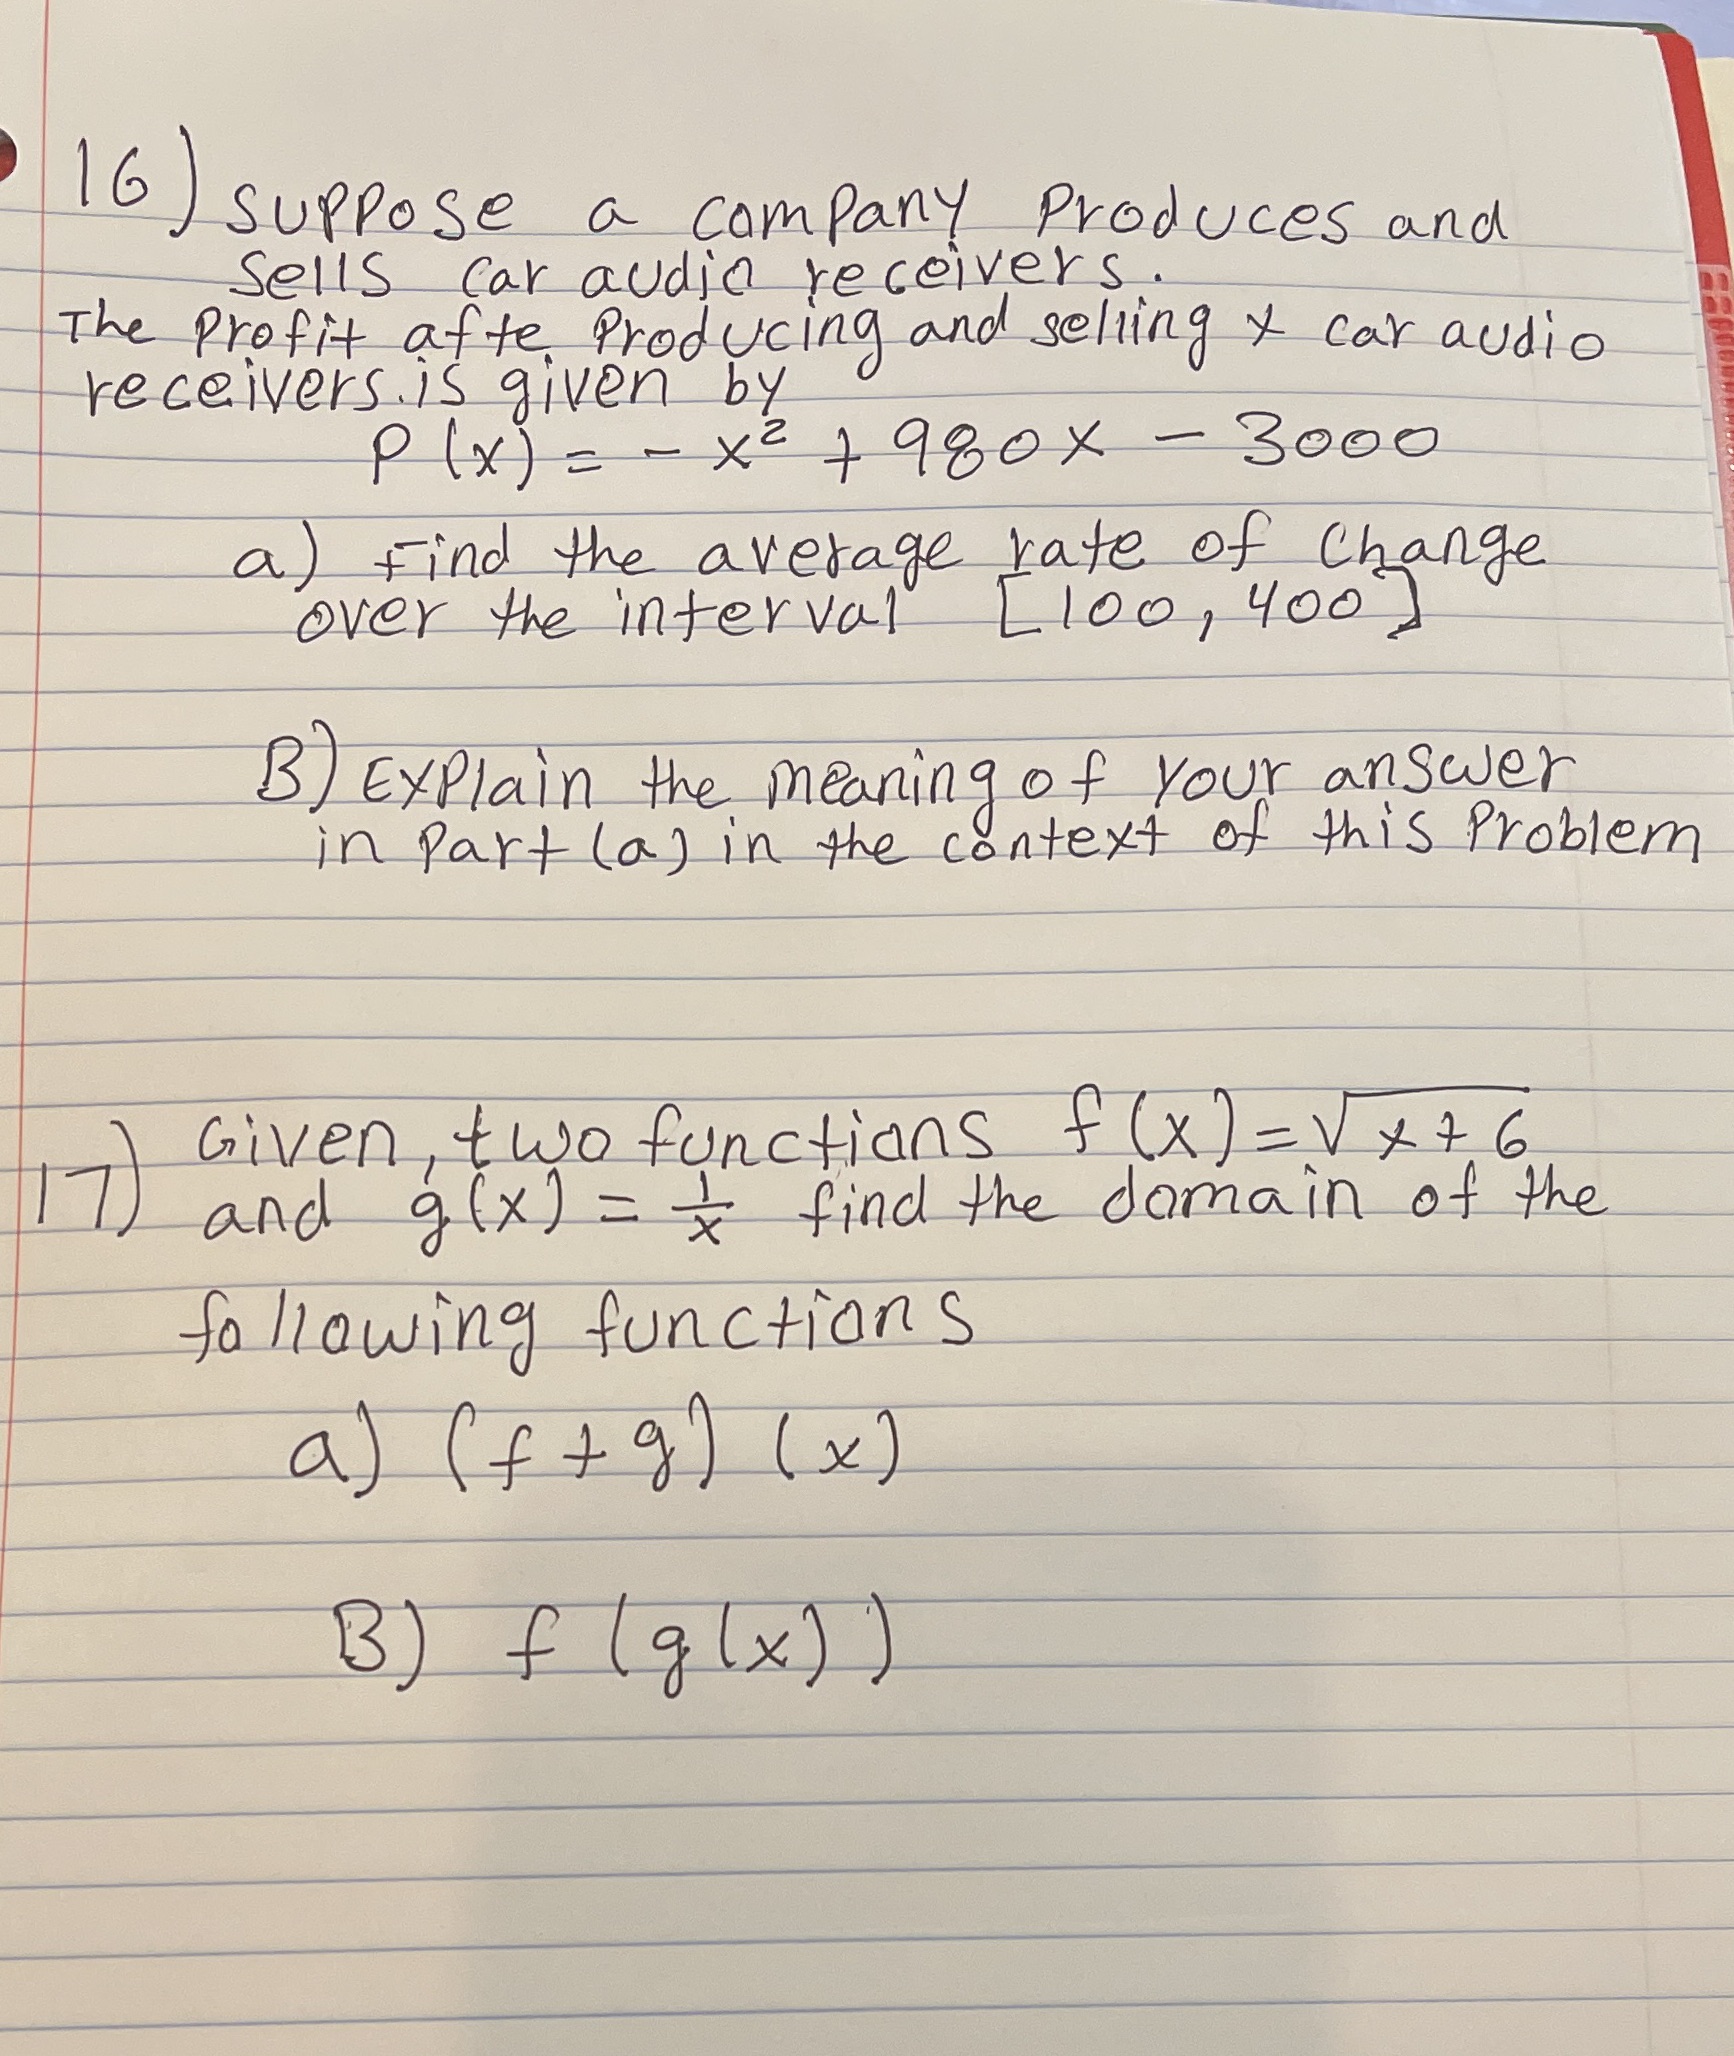 16) Suppose a company produces and
sells car audio receivers.
The profit afte producing and selling x car audio
receivers. is given by
P(x) = - x² + 980x - 3000
a) Find the average rate of change
over the interval [100, 400]
B) Explain the meaning of your answer
in part (a) in the context of this problem
17) Given, two functions f(x) = √x+6
and g(x) = 1/x find the domain of the
following functions
a) (f + g) (x)
B) f (g(x))